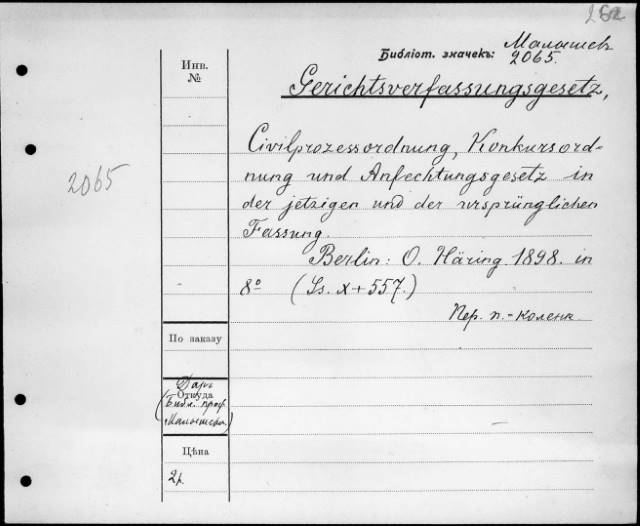 262
Малышев
Библіот. значекъ: 2065.
Инв.
№
Gerichtsverfassungsgesetz,
Civilprozessordnung, Konkursord-
2065
nung und Anfechtungsgesetz in
der jetzigen und der ursprünglichen
Fassung.
Berlin: O. Häring 1898. in
8° (Ss. X + 557.)
Пер. п.-коленк.
По заказу
Даръ
Откуда
(Библ. проф.
Малышева)
Цѣна
2р.